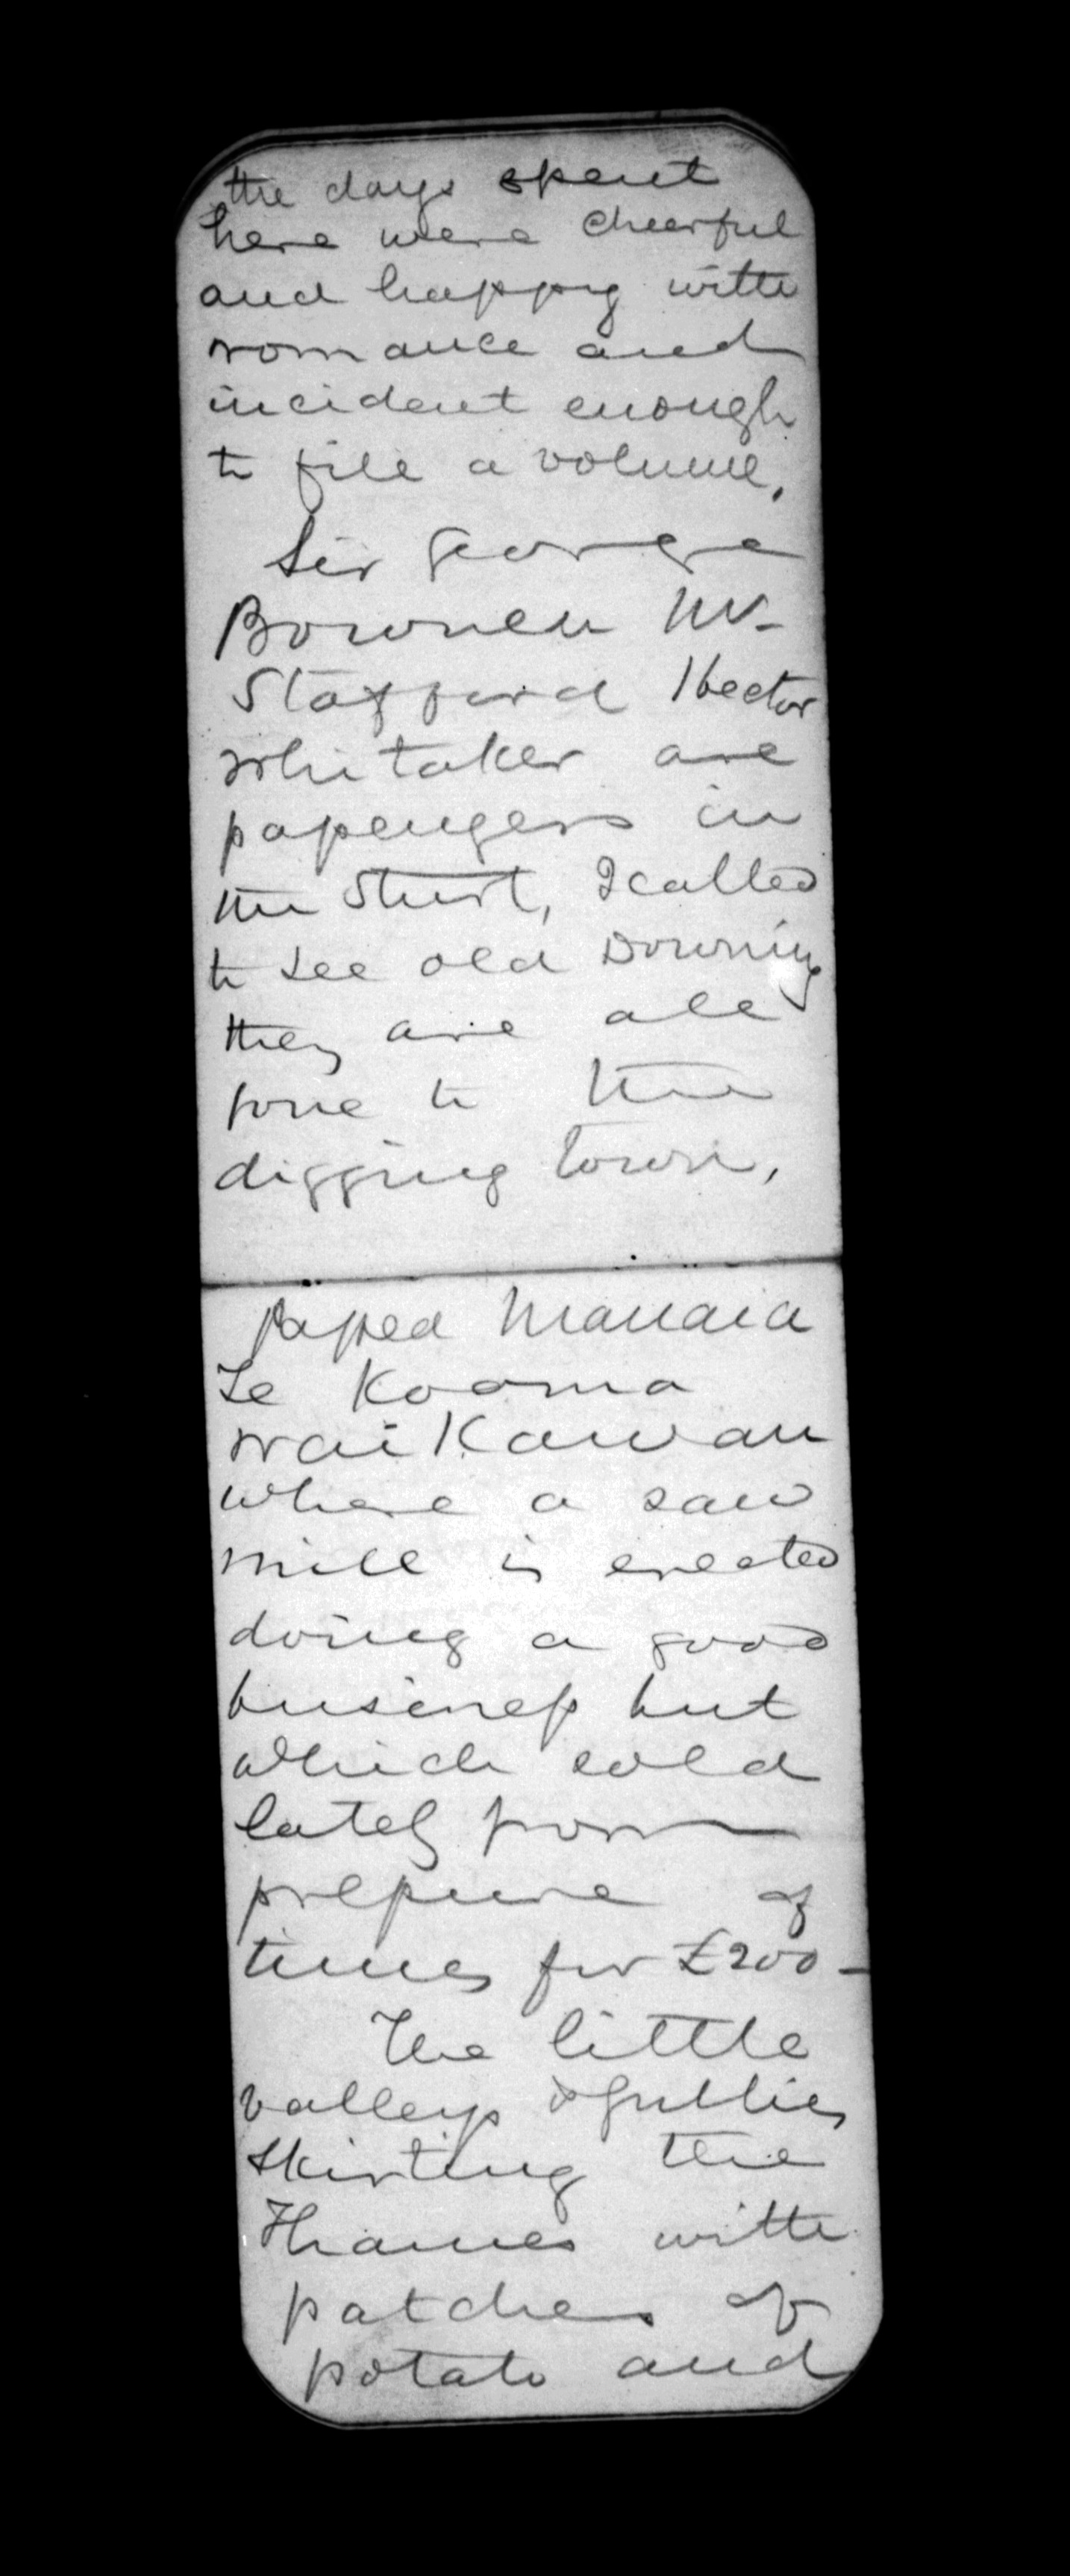 the days spent
here were cheerful
and happy with
romance and
incident enough
to fill a volume.
Sir George
Bownen Mr
Stafford Hector
Whitaker are
passengers in
the Sturt, I called
to see old Downing
they are all
gone to the
digging town,
passed Manaia
Te Kooma
Wai Kawau
where a saw
mill is erected
doing a good
business but
which sold
lately from
pressure of
times for £200 -
The little
valleys & gullies
skirting the
Thames with
patches of
potato and